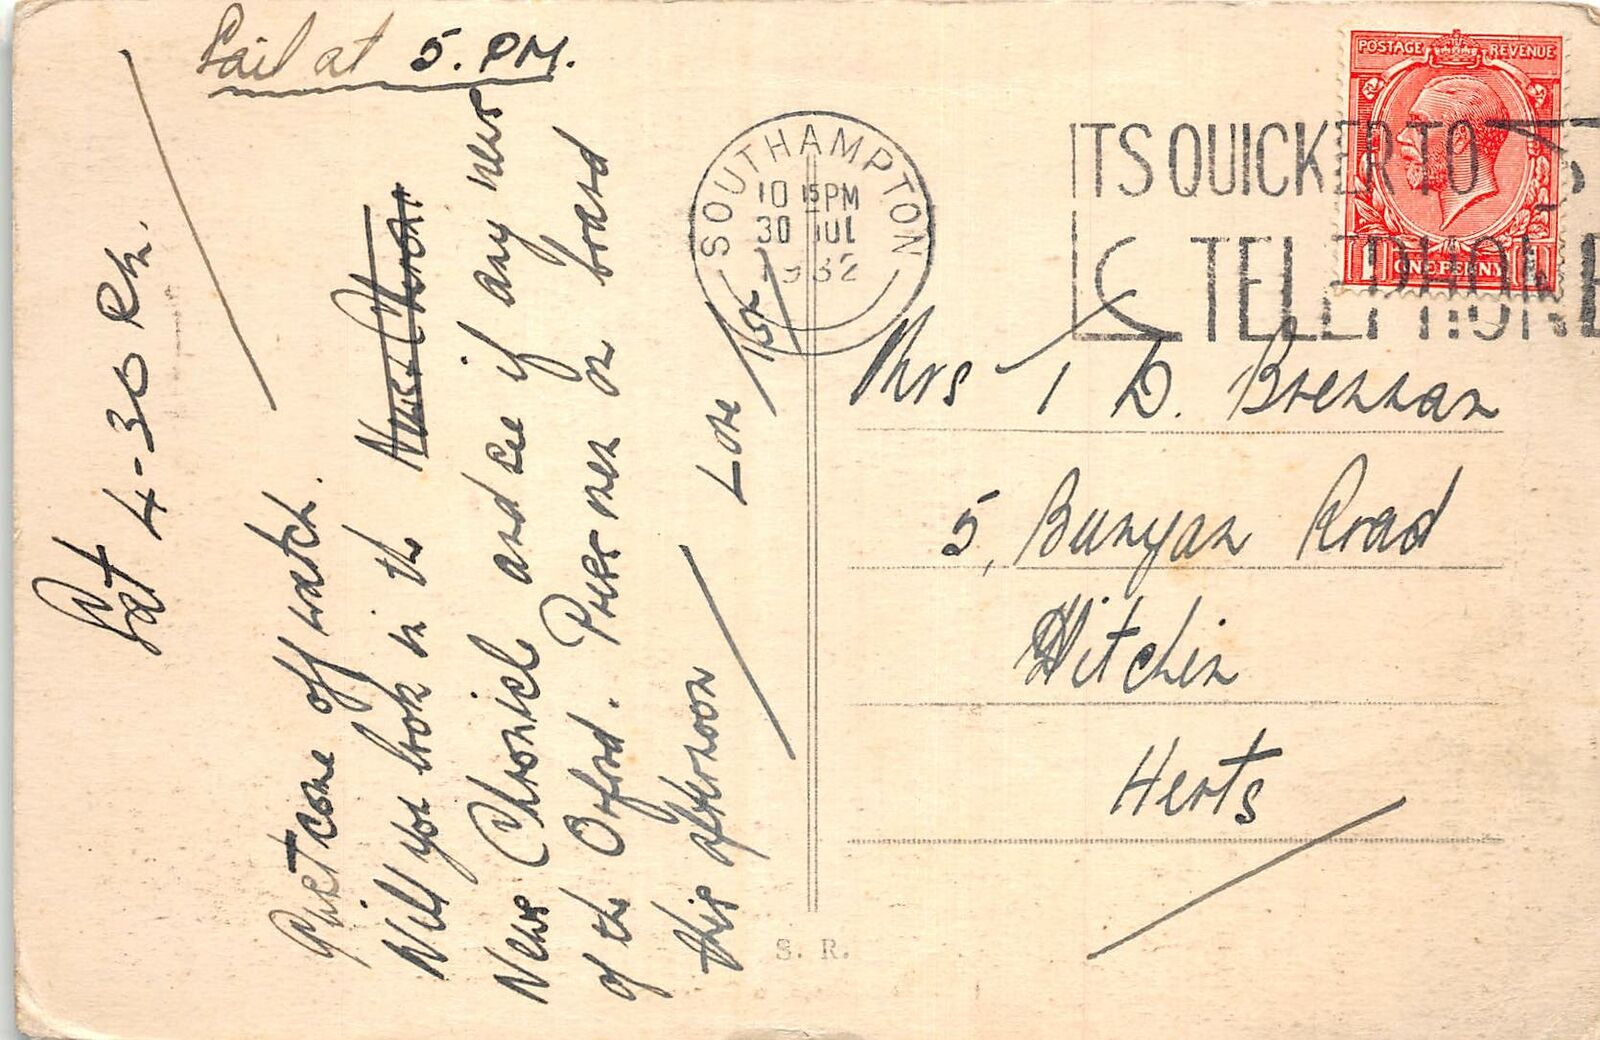 Sail at 5. PM.
Sat 4-30 Pm.
Just come off watch.
Will you look in the
News Chronicle and see if any news
of the Orford. Press men on board
this afternoon
Love
SOUTHAMPTON
10 15 PM
30 JUL
1932
ITS QUICKER TO
TELEPHONE
POSTAGE REVENUE
1 ONE PENNY 1
Mrs T D. Brennan
5, Bunyan Road
Hitchin
Herts
S. R.